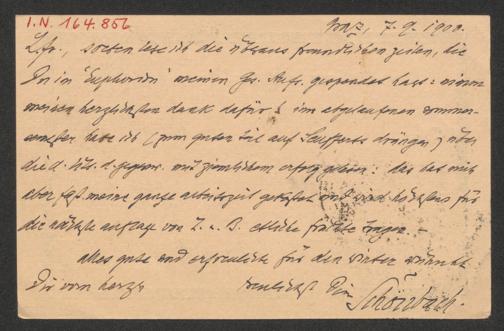 I.N. 164.856
Graz, 7. 9. 1900.
L. fr., soeben lese ich die überaus freundlichen zeilen, die
Du in "Euphorion" meinen Ges. Aufs. gespendet hast: nimm
meinen herzlichsten dank dafür! im abgelaufenen sommer-
semester habe ich (zum guten teil auf Seufferts drängen) über
die d. Lit. d. gegenw. mit ziemlichem erfolg gelesen: das hat mich
aber fast meine ganze arbeitszeit gekostet und wird höchstens für
die nächste auflage von Z. u. B. etliche früchte tragen.
Alles gute und erfreuliche für den winter wünscht
Dir vom herzen Dein
Schönbach.